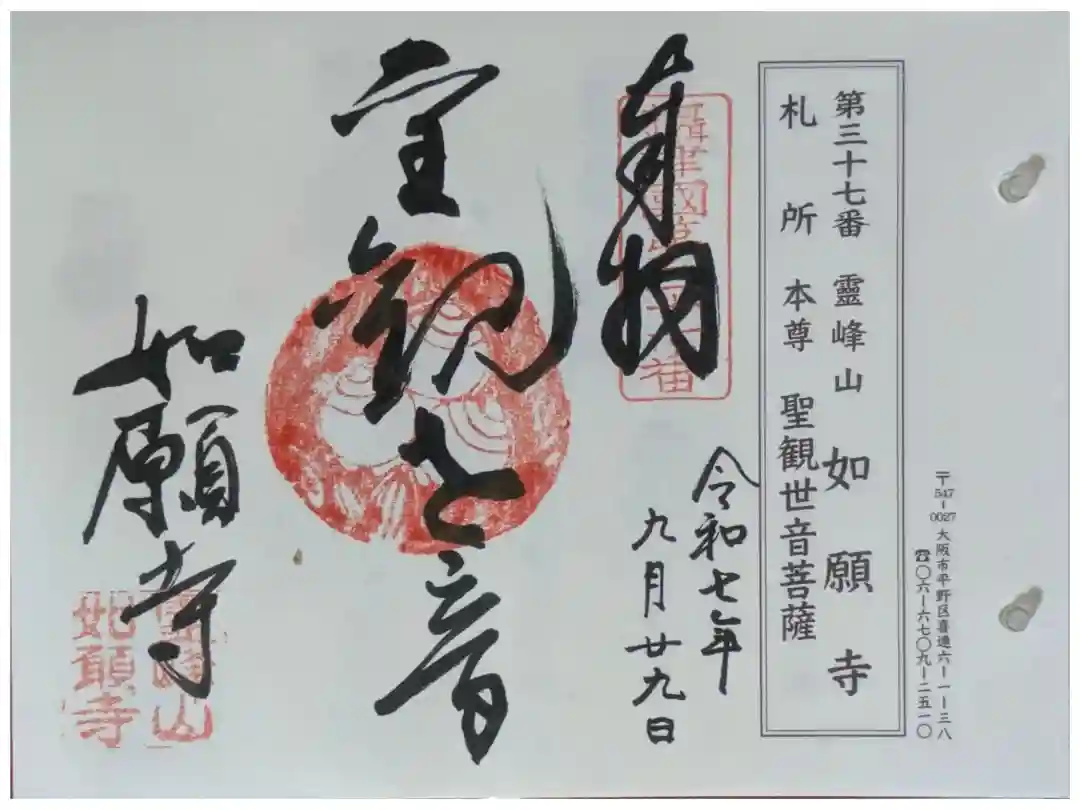 〒547-0027 大阪市平野区喜連六ー一ー三八
☎〇六ー六七〇九ー二五一〇
第三十七番 靈峰山 如願寺
札所本尊 聖観世音菩薩
奉拝
令和七年
九月廿九日
聖観世音
如願寺
靈峰山
如願寺